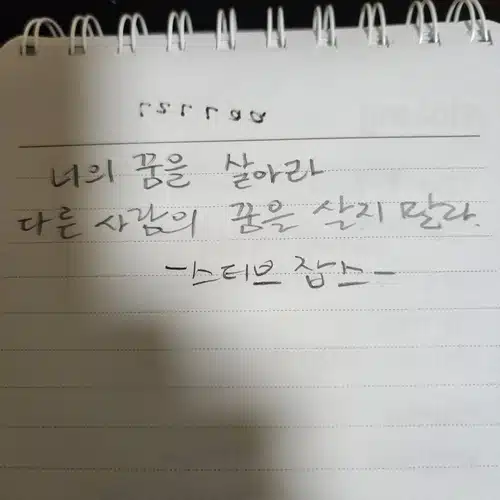 너의 꿈을 살아라
다른 사람의 꿈을 살지 말라.
-스티브 잡스-